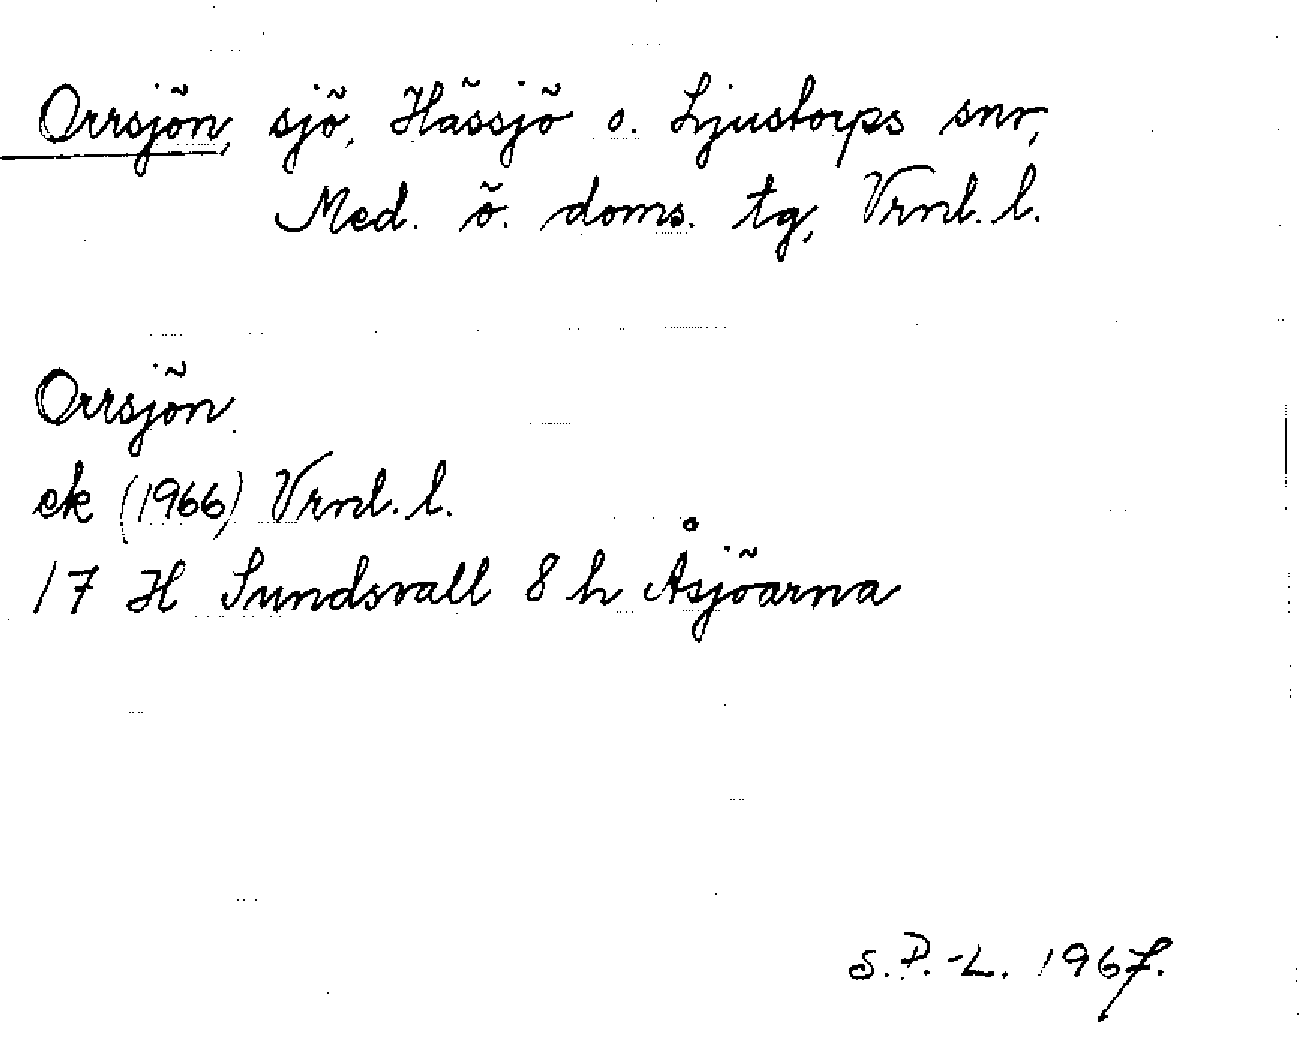 Orrsjön, sjö, Hässjö o. Ljustorps snr,
Med. ö. doms. tg, Vrnl. l.
Orrsjön
ek (1966) Vrnl. l.
17 H Sundsvall 8 h Åsjöarna
S. P.-L. 1967.